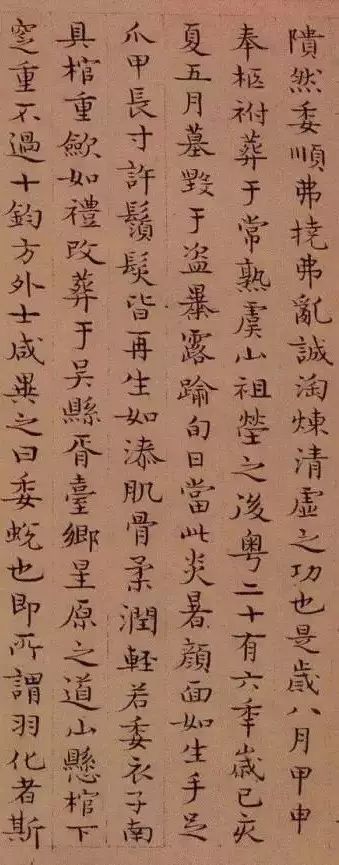 隤然委順弗撓弗亂誠淘煉清虛之功也是歲八月甲申
奉柩祔葬于常熟虞山祖塋之後粵二十有六年歲己亥
夏五月墓毀于盜暴露踰旬日當此炎暑顏面如生手足
爪甲長寸許鬚髮皆再生如漆肌骨柔潤軽若委衣子南
具棺重歛如禮改葬于吳縣胥臺鄉星原之道山懸棺下
窆重不過十鈞方外士咸異之曰委蛻也即所謂羽化者斯